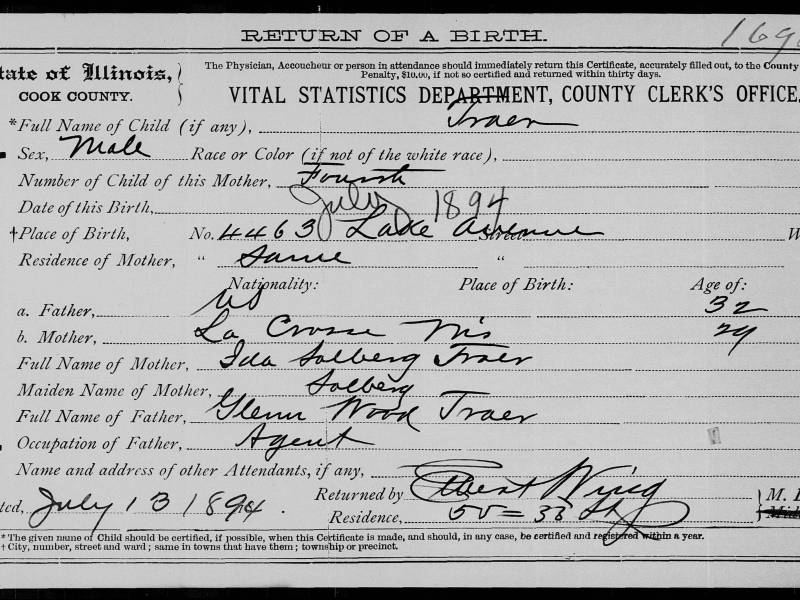 RETURN OF A BIRTH.
tate of Illinois,
COOK COUNTY.
The Physician, Accoucheur or person in attendance should immediately return this Certificate, accurately filled out, to the County
Penalty, $10.00, if not so certified and returned within thirty days.
VITAL STATISTICS DEPARTMENT, COUNTY CLERK'S OFFICE,
*Full Name of Child (if any), Traer
Sex, Male Race or Color (if not of the white race),
Number of Child of this Mother, Fourth
Date of this Birth, July 1894
†Place of Birth, No. 4463 Lake Avenue Street
Residence of Mother, " Same "
Nationality: Place of Birth: Age of:
a. Father, US 32
b. Mother, La Crosse Wis 29
Full Name of Mother, Ida Solberg Traer
Maiden Name of Mother, Solberg
Full Name of Father, Glenn Wood Traer
Occupation of Father, Agent
Name and address of other Attendants, if any,
ted, July 13 1894. Returned by Elbert Wing M.
Residence, 55=33 St
*The given name of Child should be certified, if possible, when this Certificate is made, and should, in any case, be certified and registered within a year.
†City, number, street and ward; same in towns that have them; township or precinct.